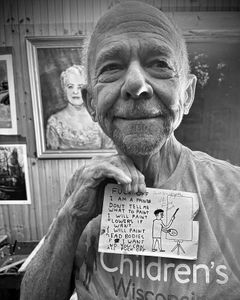 I AM A PAINTER
DON'T TELL ME
WHAT TO PAINT
I WILL PAINT
FLOWERS IF
I WANT
I WILL PAINT
DEAD BODIES
IF I WANT
Children's
Wisconsin